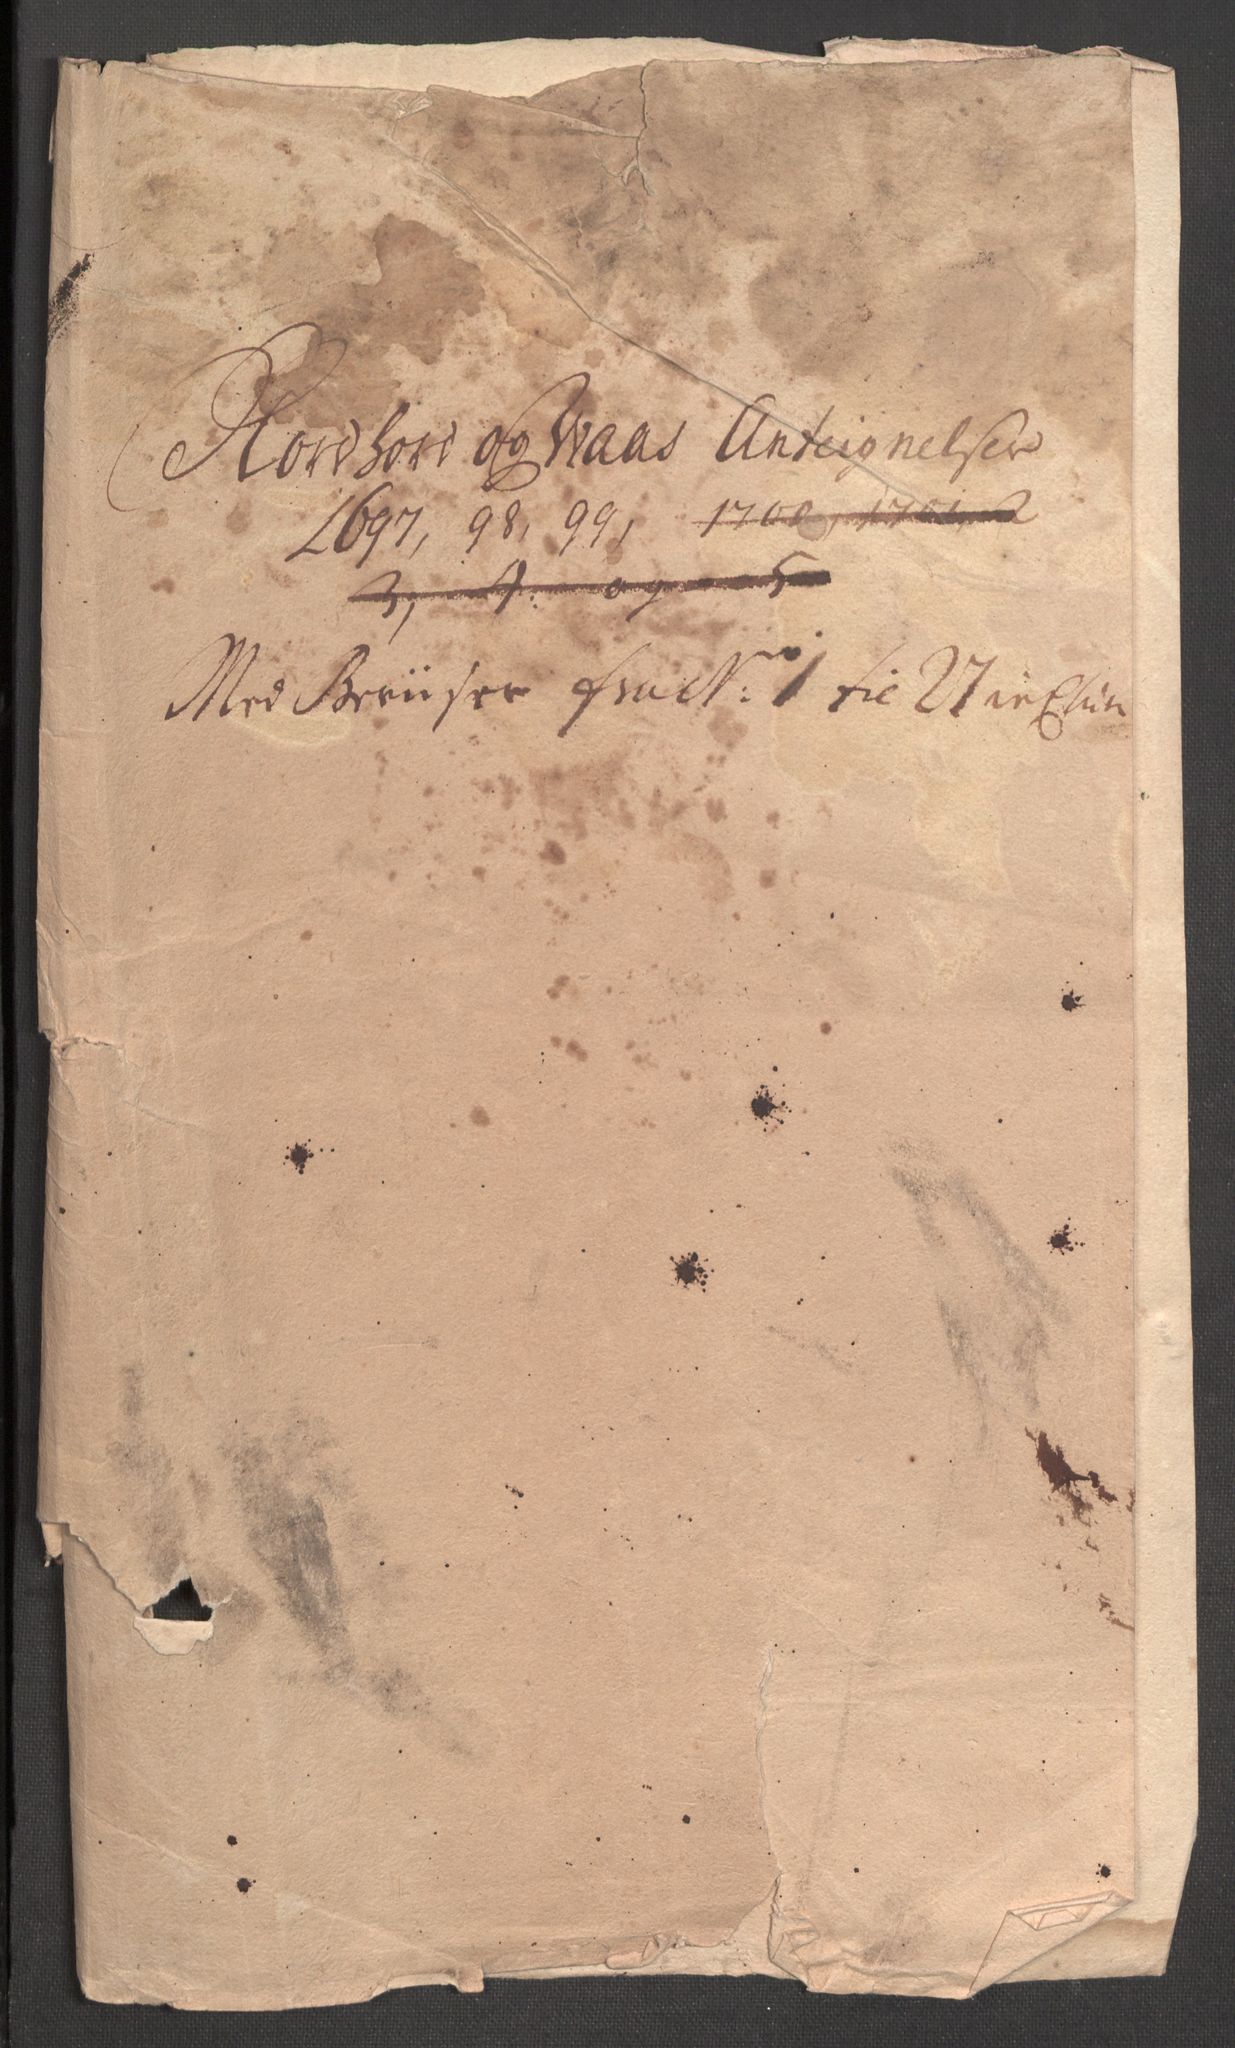 Nordhord og Waas Anteignelser
1697, 98, 99, 1700, 1701, 2
3, 4. og 5
Med Beviiser fra N: 1 til 27 inclus